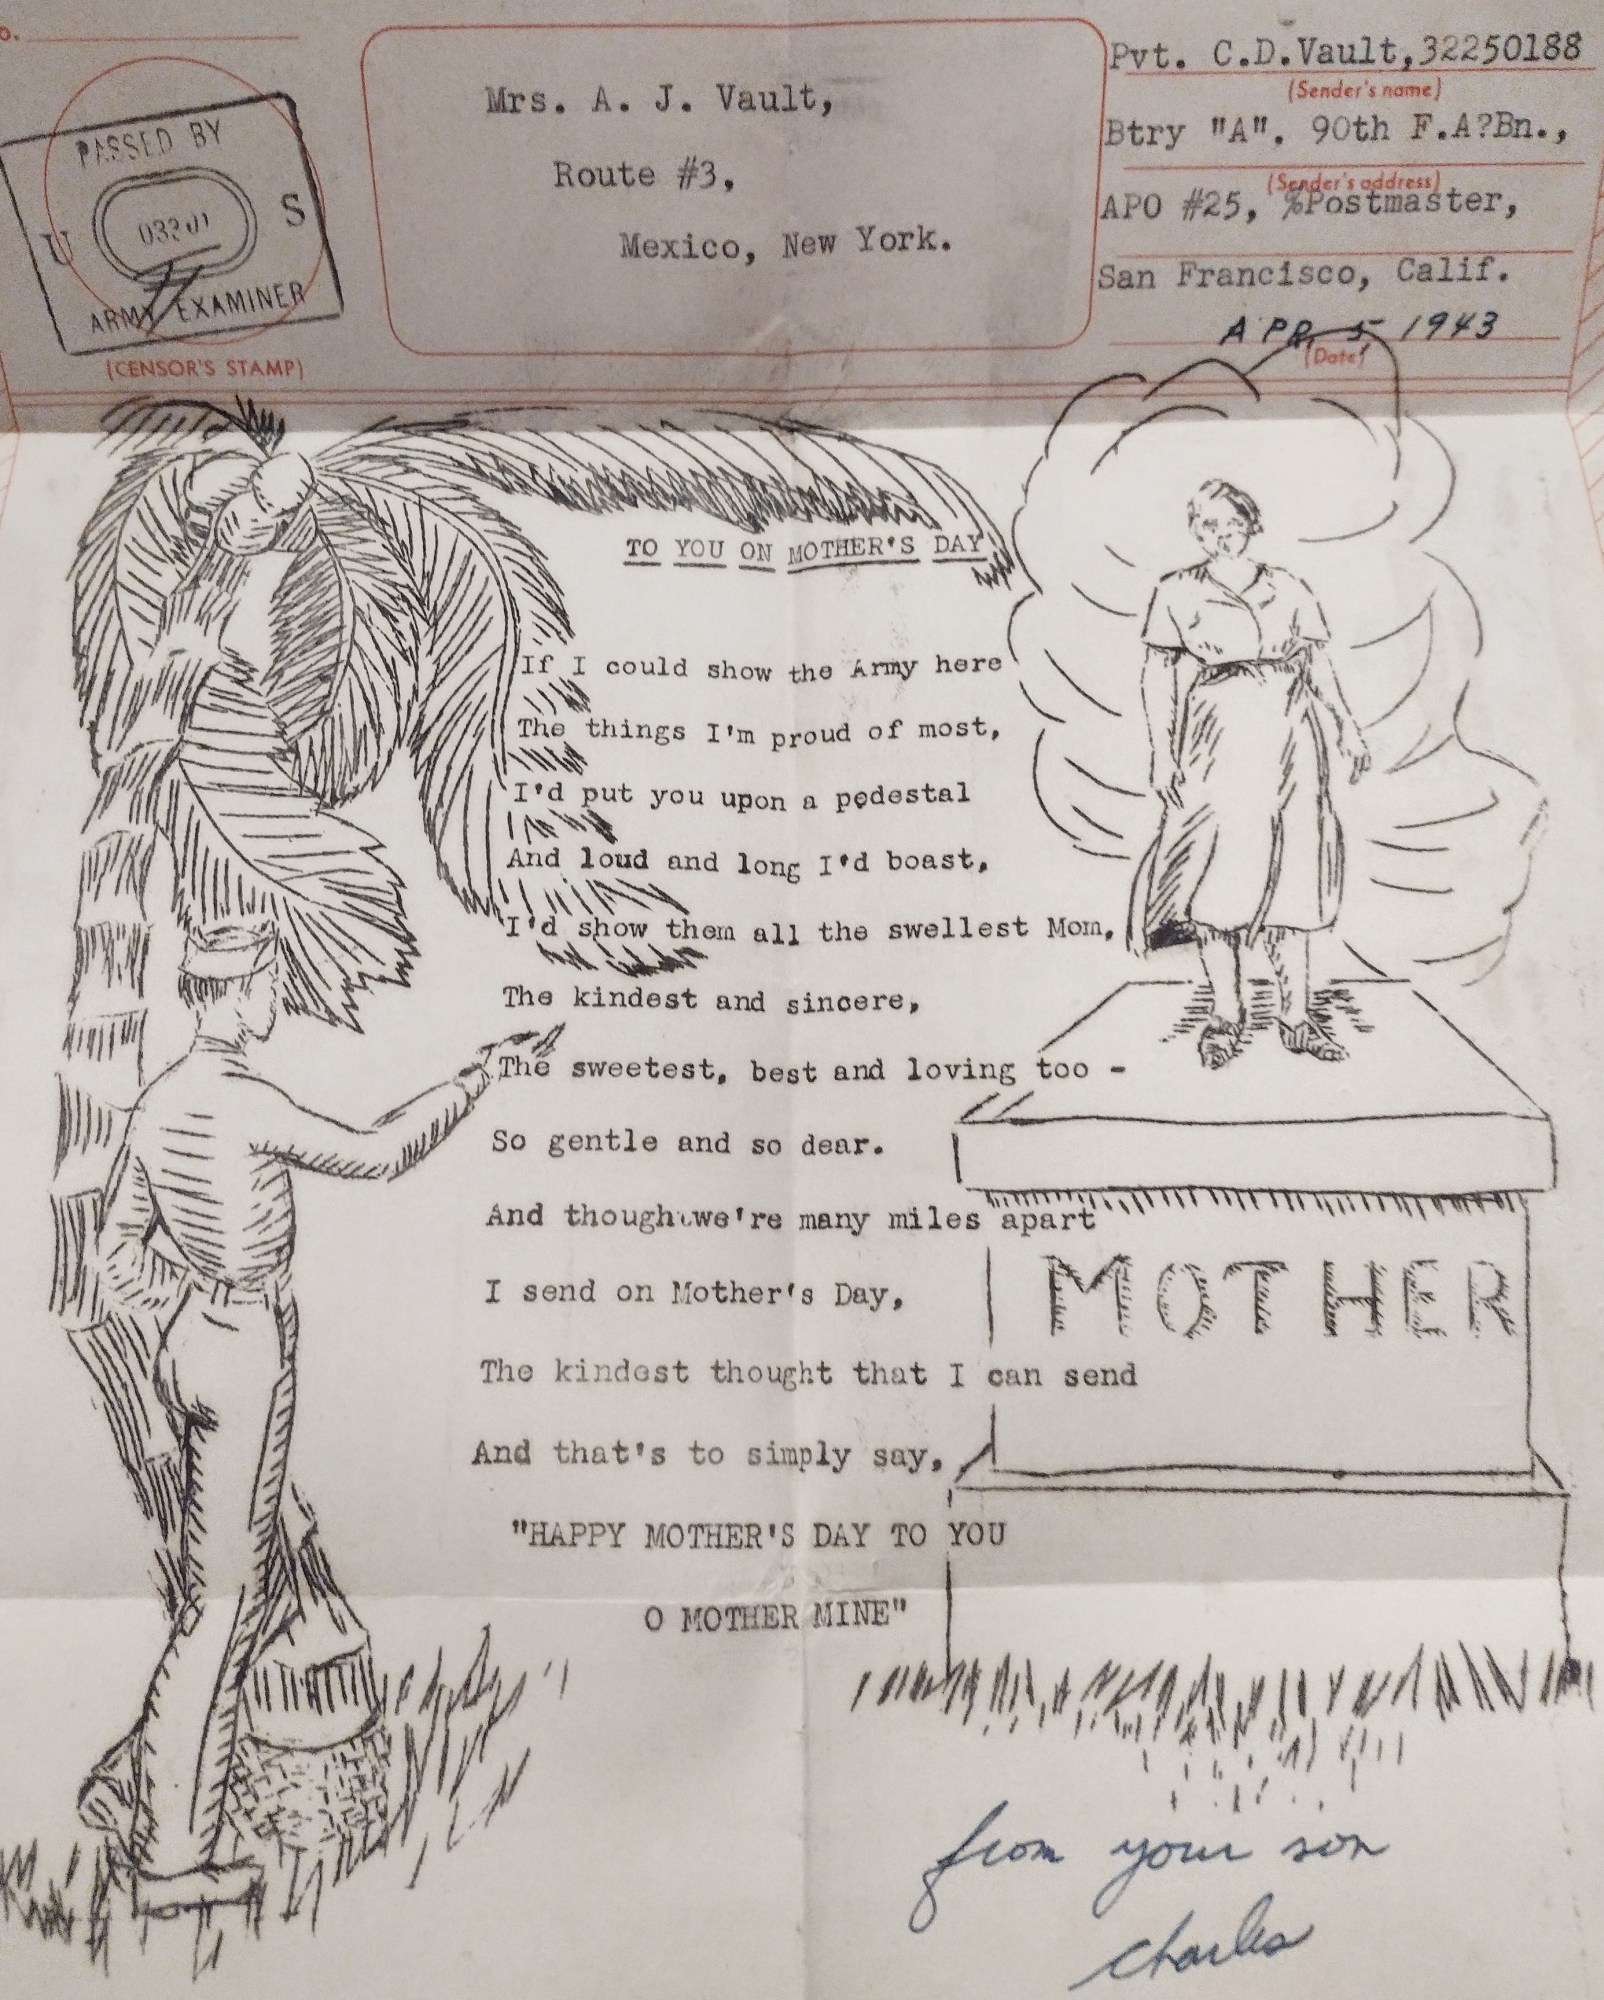 Mrs. A. J. Vault,
Route #3,
Mexico, New York.
Pvt. C.D.Vault,32250188
(Sender's name)
Btry "A". 90th F.A?Bn.,
(Sender's address)
APO #25, %Postmaster,
San Francisco, Calif.
APR 5 1943
(Date)
PASSED BY
U S
ARMY EXAMINER
(CENSOR'S STAMP)
TO YOU ON MOTHER'S DAY
If I could show the Army here
The things I'm proud of most,
I'd put you upon a pedestal
And loud and long I'd boast,
I'd show them all the swellest Mom,
The kindest and sincere,
The sweetest, best and loving too -
So gentle and so dear.
And though we're many miles apart
I send on Mother's Day,
The kindest thought that I can send
And that's to simply say,
"HAPPY MOTHER'S DAY TO YOU
O MOTHER MINE"
MOTHER
from your son
Charles